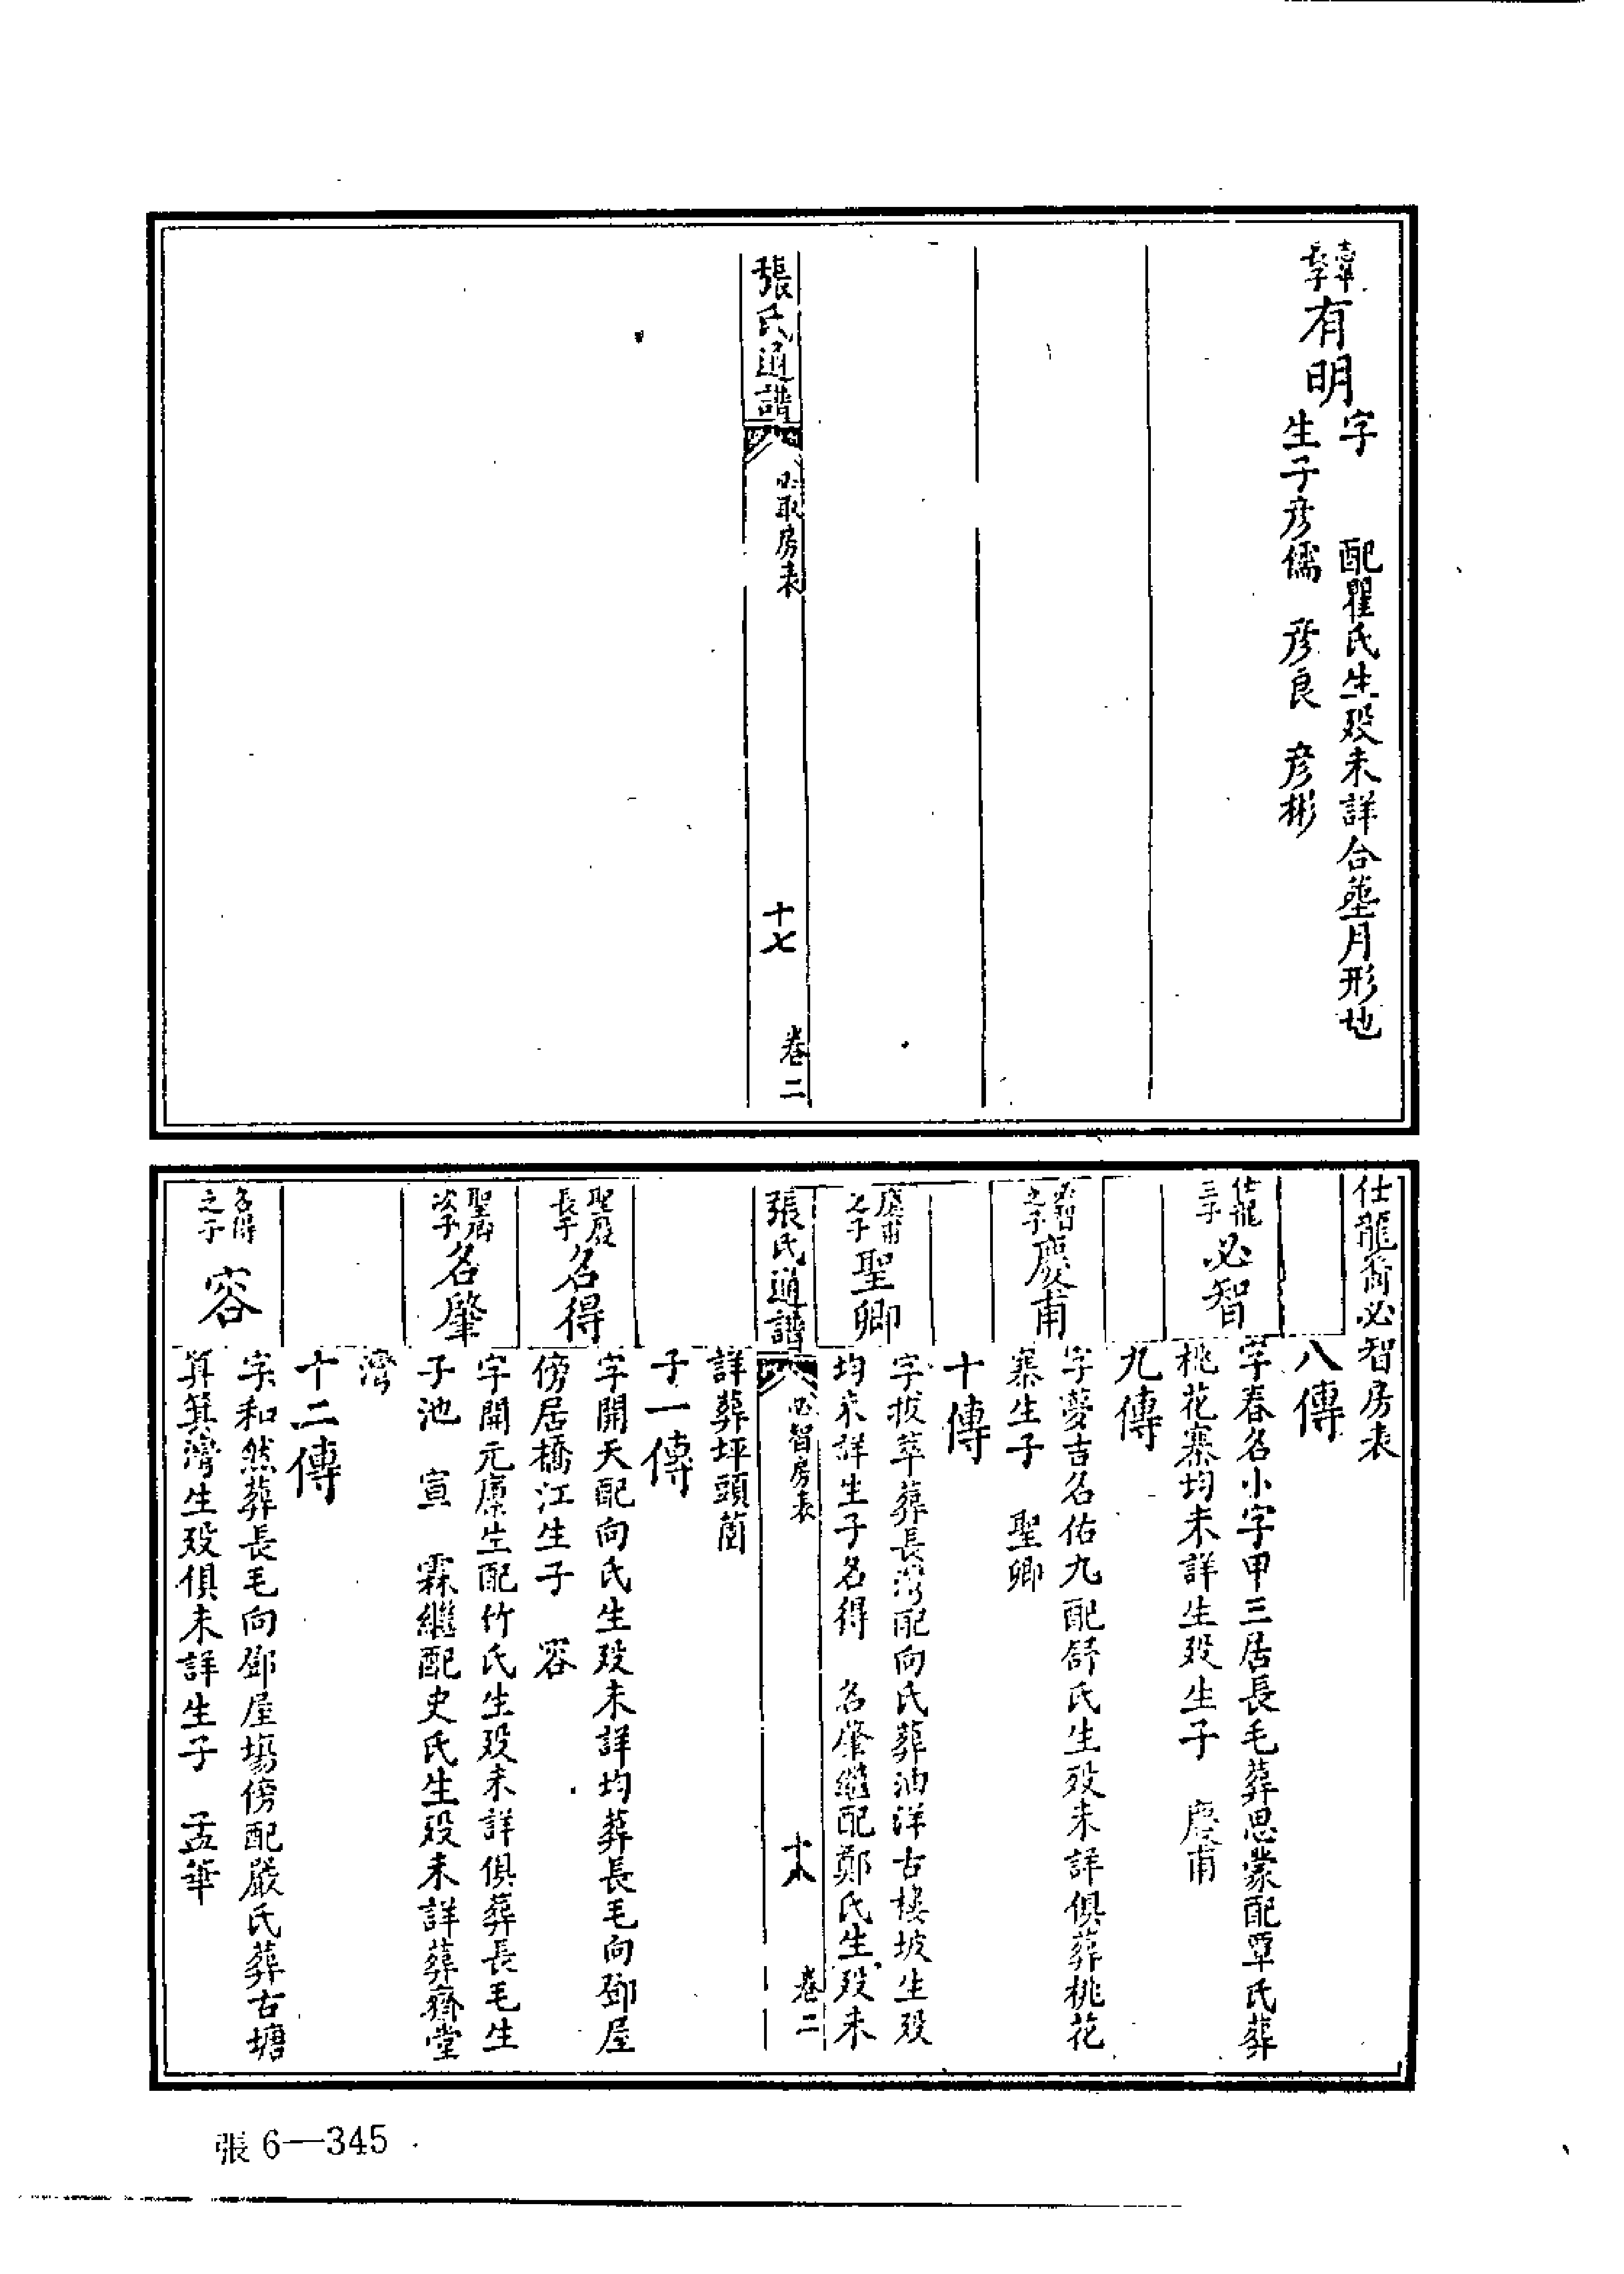 有明
字　配瞿氏生歿未詳合葬月形地
生子彥儒　彥良　彥彬
張氏通譜
必取房表
十七
卷二
仕龍裔必智房表
八傳
仕龍
三子
必智
字春名小字甲三居長毛葬思蒙配覃氏葬
桃花寨均未詳生歿生子　慶甫
九傳
必智
之子
慶甫
字夢吉名佑九配舒氏生歿未詳俱葬桃花
寨生子　聖卿
十傳
慶甫
之子
聖卿
字拔萃葬長灣配向氏葬油洋古樓坡生歿
均未詳生子名得　名肇繼配鄭氏生歿未
張氏通譜
必智房表
十八
卷二
詳葬坪頭茵
子一傳
聖殷
長子
名得
字開天配向氏生歿未詳均葬長毛向鄧屋
傍居橋江生子　容
聖卿
次子
名肇
字開元廩生配竹氏生歿未詳俱葬長毛生
子池　宣　霖繼配史氏生歿未詳葬齋堂
灣
十二傳
名得
之子
容
字和然葬長毛向鄧屋塲傍配嚴氏葬古塘
箕灣生歿俱未詳生子　孟華
張6—345